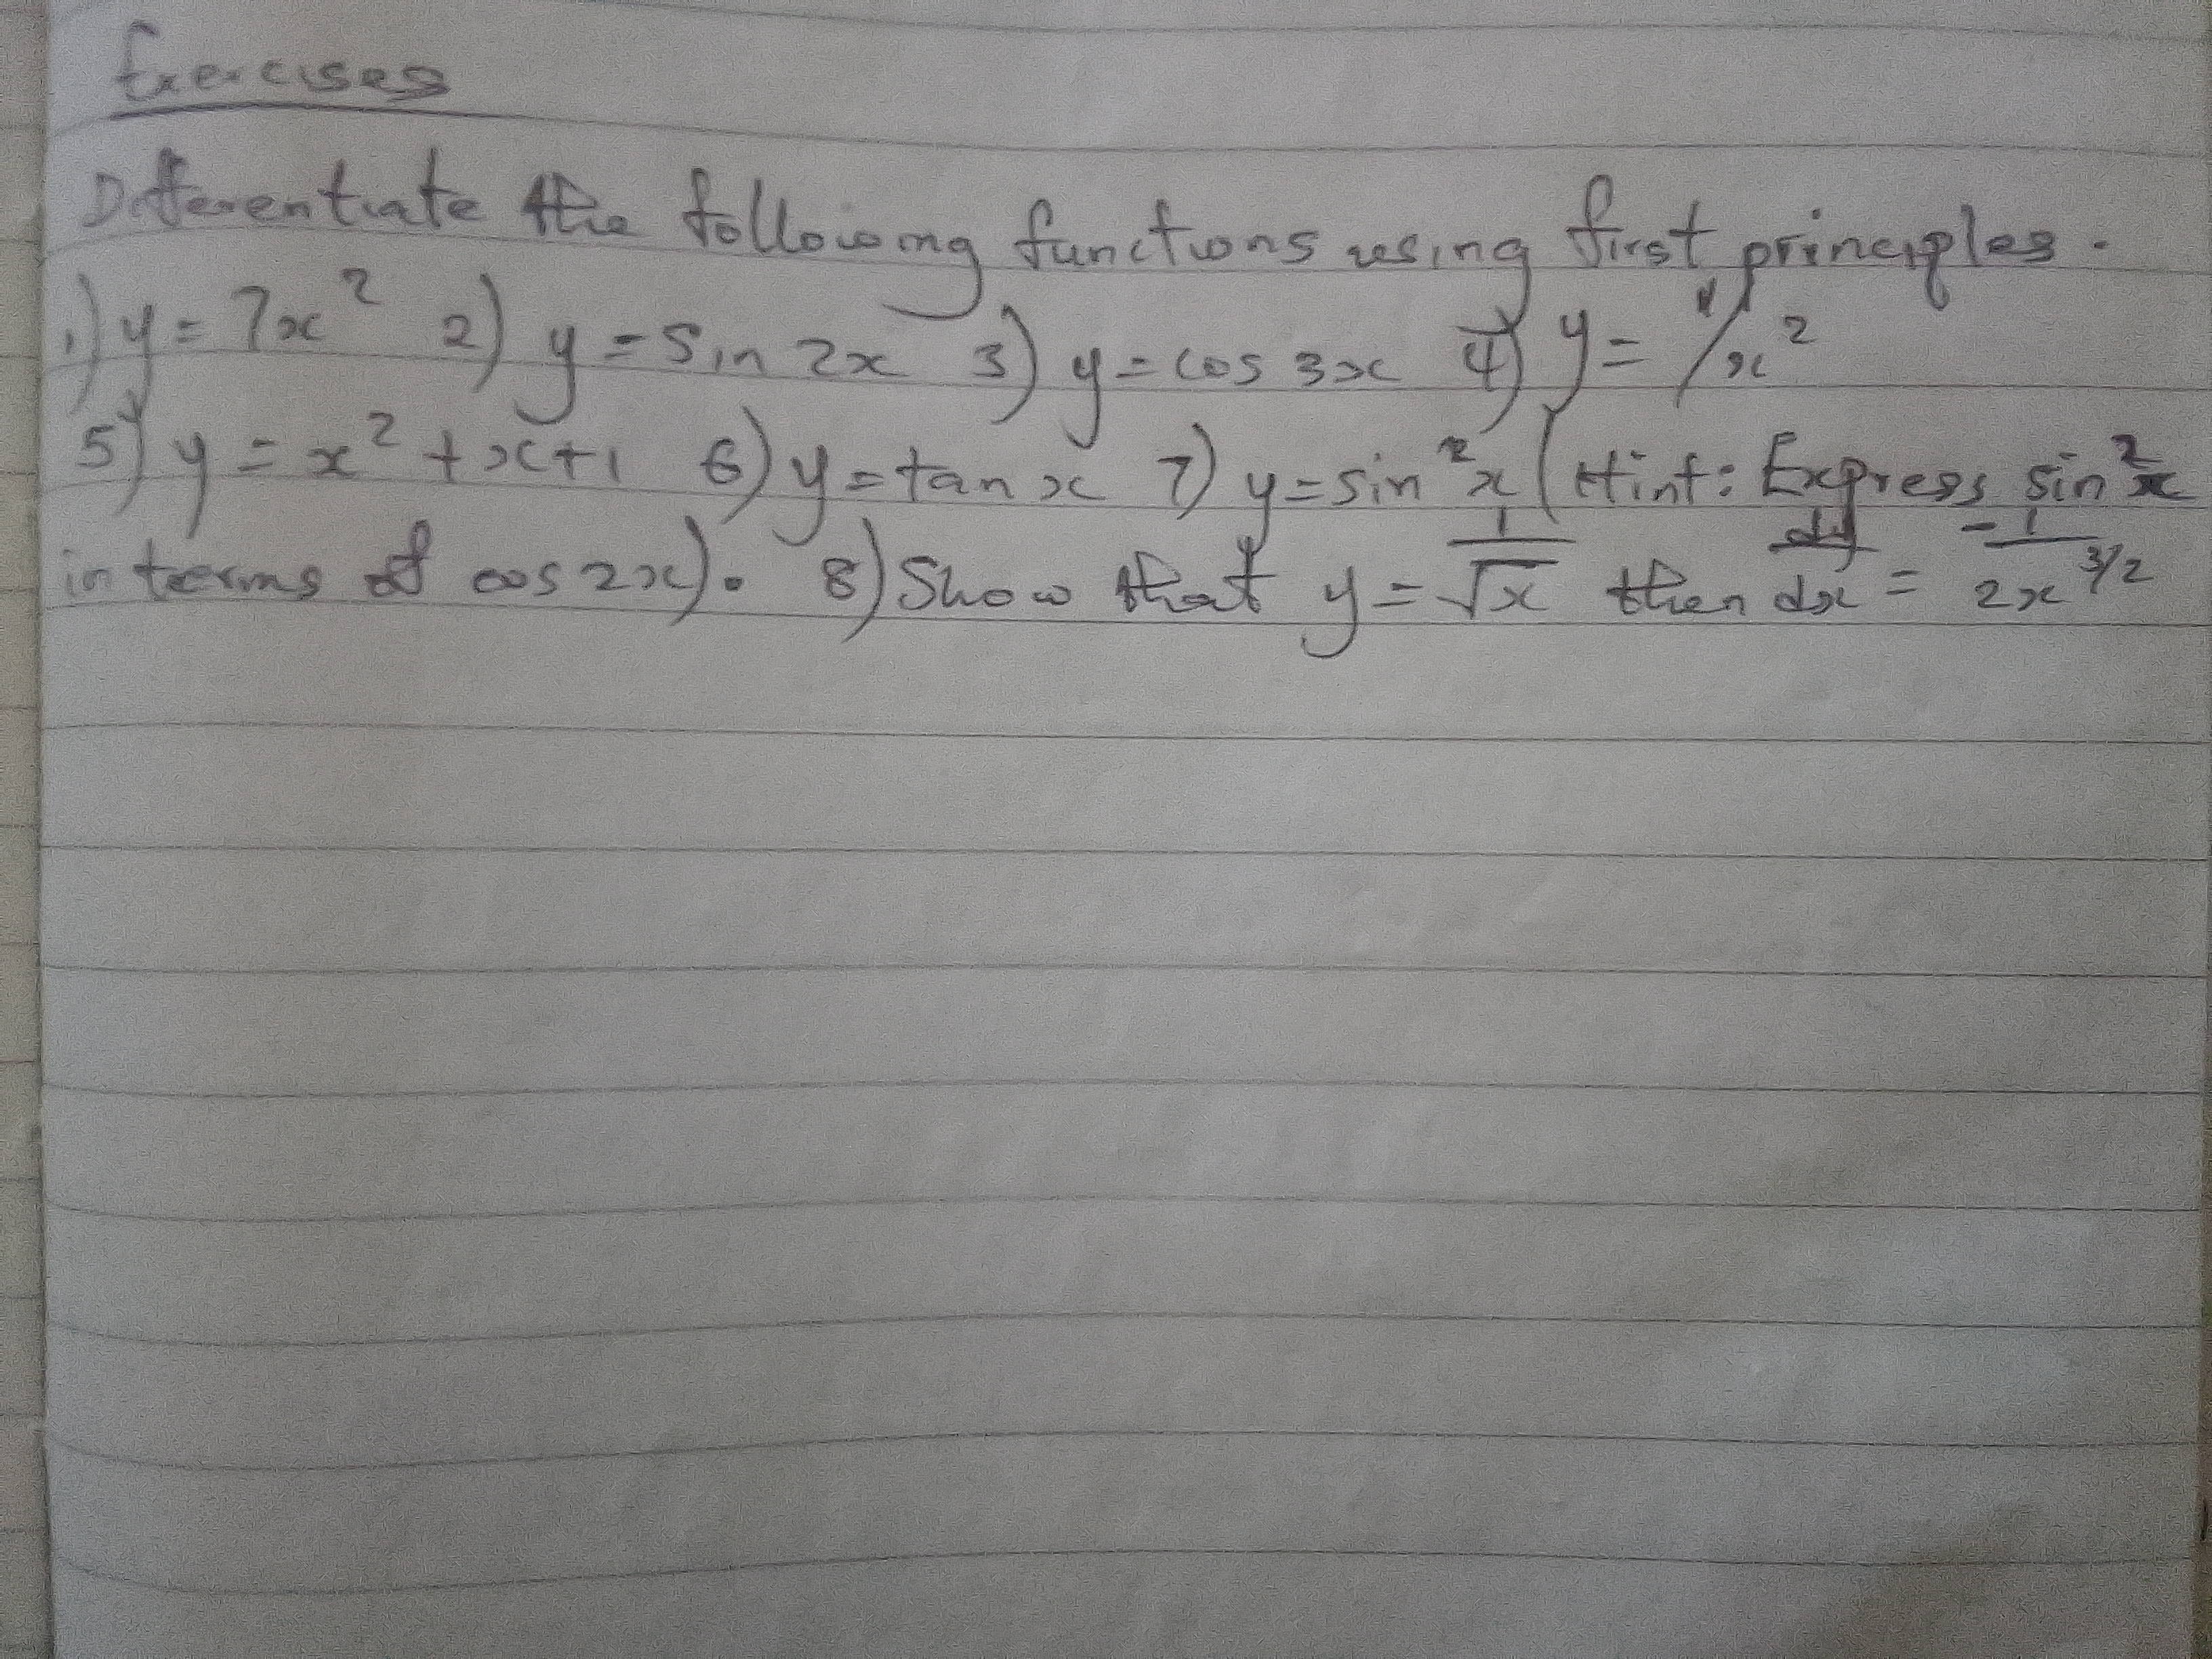 Exercises
Differentiate the following functions using first principles.
1) y = 7x² 2) y = sin 2x 3) y = cos 3x 4) y = 1/x²
5) y = x² + x + 1 6) y = tan x 7) y = sin²x (Hint: Express sin²x
in terms of cos 2x). 8) Show that y = 1/√x then dy/dx = -1/2x^3/2